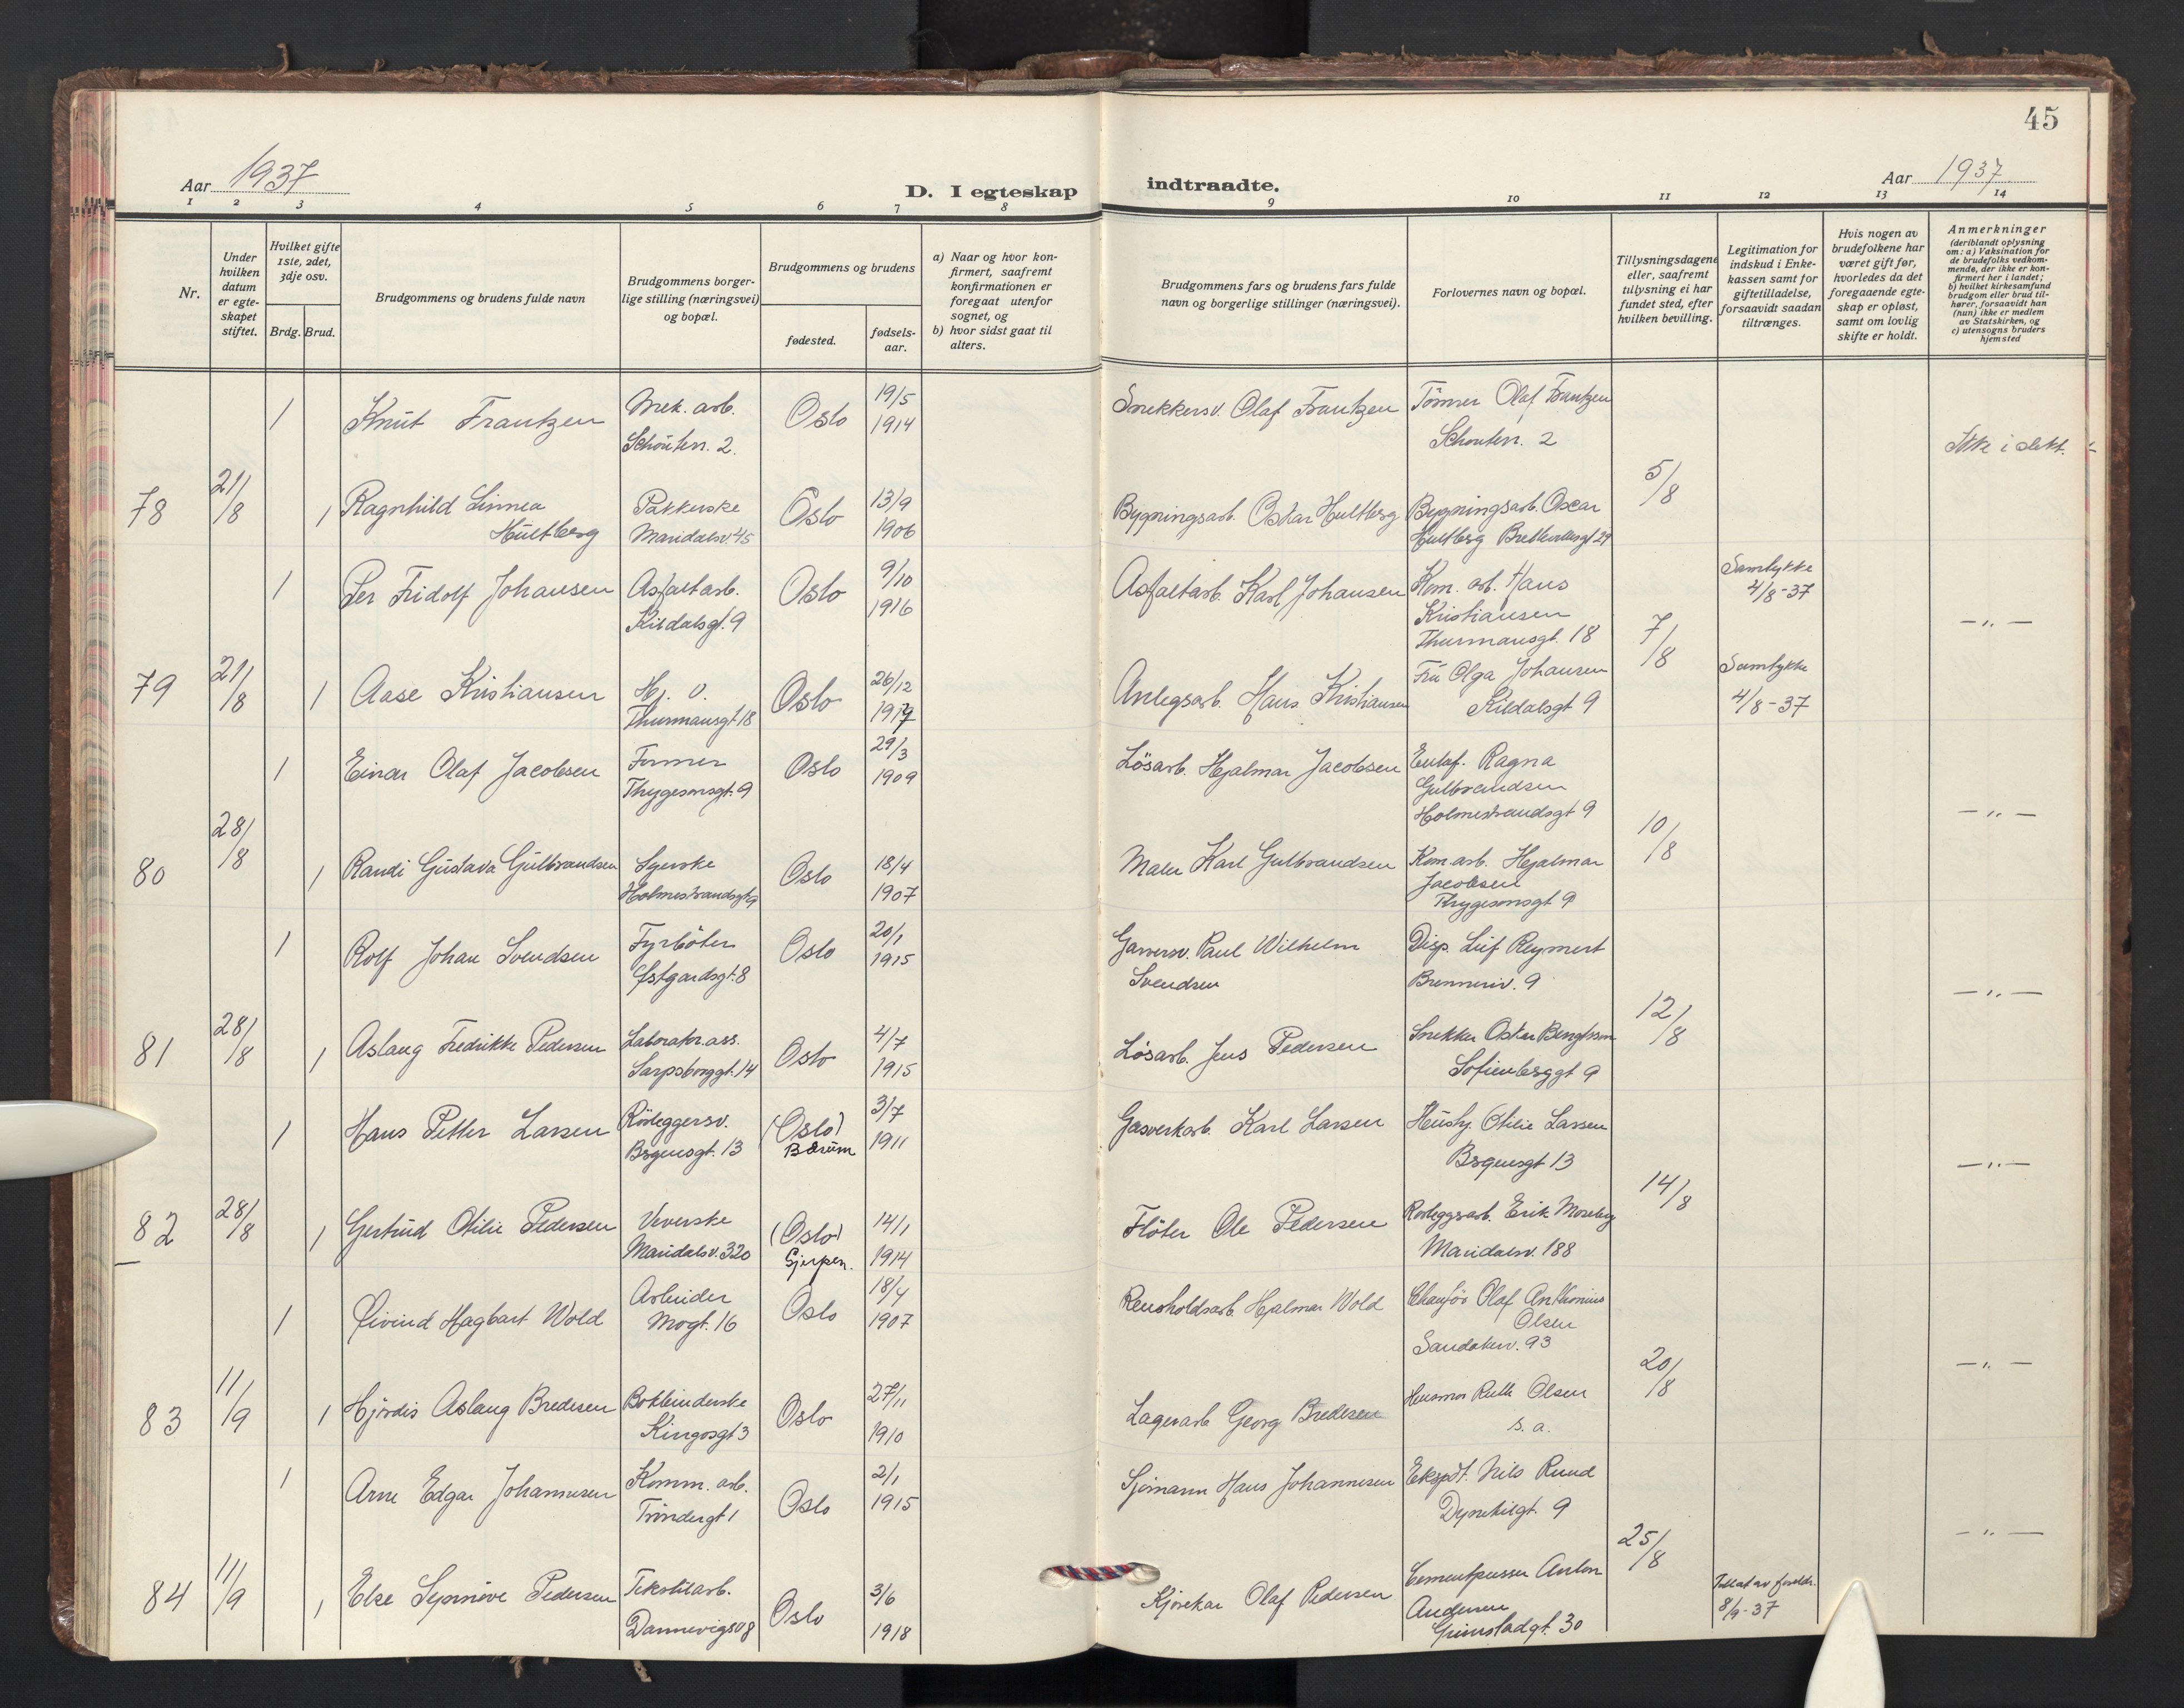 45
Aar 1937
D. I egteskap indtraadte.
Aar 1937
1 2 3 4 5 6 7 8 9 10 11 12 13 14
Nr.
Under hvilken datum er egteskapet stiftet.
Hvilket gifte 1ste, 2det, 3dje osv.
Brdg. Brud.
Brudgommens og brudens fulde navn
Brudgommens borgerlige stilling (næringsvei) og bopæl.
Brudgommens og brudens
fødested.
fødselsaar.
a) Naar og hvor konfirmert, saafremt konfirmationen er foregaat utenfor sognet, og
b) hvor sidst gaat til alters.
Brudgommens fars og brudens fars fulde navn og borgerlige stillinger (næringsvei).
Forlovernes navn og bopæl.
Tillysningsdagene eller, saafremt tillysning ei har fundet sted, efter hvilken bevilling.
Legitimation for indskud i Enkekassen samt for giftetilladelse, forsaavidt saadan tiltrænges.
Hvis nogen av brudefolkene har været gift før, hvorledes da det foregaaende egteskap er opløst, samt om lovlig skifte er holdt.
Anmerkninger
(deriblandt oplysning om: a) Vaksination for de brudefolks vedkommende, der ikke er konfirmert her i landet; b) hvilket kirkesamfund brudgom eller brud tilhører, forsaavidt han (hun) ikke er medlem av Statskirken, og c) utensogns bruders hjemsted
1 Knut Frantzen Mek. arb. Schouten. 2. Oslo 19/5 1914 Snekkersv. Olaf Frantzen Tömmer Olaf Frantzen Schouten. 2
Ikke i slekt.
78 21/8 1 Ragnhild Linnea Hultberg Pakkerske Maridalsv. 45 Oslo 13/9 1906 Bygningsarb. Oskar Hultberg Bygningsarb. Oscar Hultberg 5/8
1 Per Fridolf Johansen Asfaltarb. Kildalsgt. 9 Oslo 9/10 1916 Asfaltarb. Karl Johansen Kom. arb. Hans Kristiansen Thurmansgt. 18 Samtykke 4/8-37
— " —
79 21/8 1 Aase Kristiansen Hj. v. Thurmansgt 18 Oslo 26/12 1917 Anlegsarb. Hans Kristiansen Fru Olga Johansen Kildalsgt 9 7/8 Samtykke 4/8-37
1 Einar Olaf Jacobsen Former Thygesonsgt. 9 Oslo 29/3 1909 Lösarb. Hjalmar Jacobsen Ragna Gulbrandsen Holmestrandsgt 9
— " —
80 28/8 1 Randi Gustava Gulbrandsen Syerske Holmestrandsgt 9 Oslo 18/4 1907 Maler Karl Gulbrandsen Kom. arb. Hjalmar Jacobsen Thygesonsgt 9 10/8
1 Rolf Johan Svendsen Fyrböter Østgaardsgt. 8 Oslo 20/1 1915 Garversv. Paul Wilhelm Svendsen Disp. Leif Reymert Brenneriv. 9
— " —
81 28/8 1 Aslaug Fredrikke Pedersen Laborator. ass. Sarpsborggt. 14 Oslo 4/7 1915 Lösarb. Jens Pedersen Snekker Oskar Bengtson Sofienberggt 9 12/8
1 Hans Petter Larsen Rörleggersv. Bergensgt. 13 (Oslo) Bærum 3/7 1911 Gasverkarb. Karl Larsen Hustr. Otilie Larsen Bergensgt 13
— " —
82 28/8 1 Gertrud Otilie Pedersen Veverske Maridalsv. 320 (Oslo) Gjerpen. 14/1 1914 Flöter Ole Pedersen Rörleggerarb. Erik Moseberg Maridalsv. 188 14/8
1 Øivind Hagbart Wold Arbeider Mogt. 16 Oslo 18/4 1907 Renholdsarb. Hjalmar Wold Chauför Olaf Anthonius Olsen Sandakerv. 93
— " —
83 11/9 1 Hjördis Aslaug Bredesen Bokbinderske Kingosgt 3 Oslo 27/11 1910 Lagerarb Georg Bredesen Husmor Ruth Olsen s. a. 20/8
1 Arne Edgar Johannesen Komm. arb. Tröndergt 1 Oslo 2/1 1915 Sjömann Hans Johannesen Ekspdt. Nils Ruud Dynekilgt. 9
— " —
84 11/9 1 Else Synnöve Pedersen Tekstilarb. Dannevigsv 8 Oslo 3/6 1918 Kjörekar Olaf Pedersen Cementpusser Anton Andersen Grimstadgt. 30 25/8 Tillat av foreldr. 8/9-37